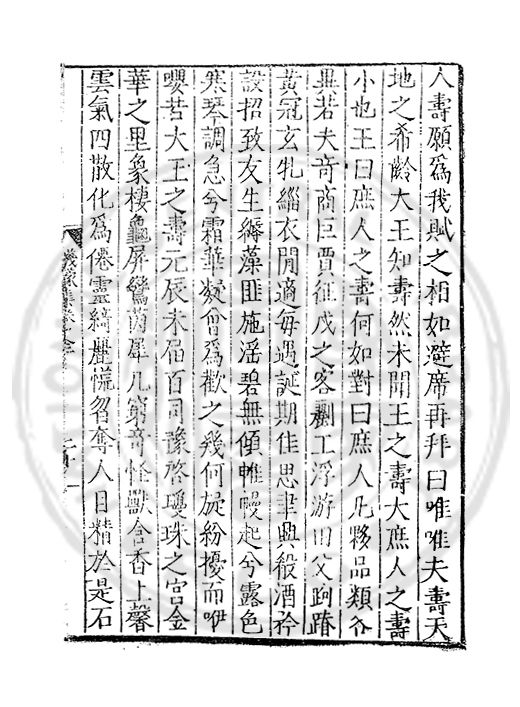 人壽願爲我賦之相如避席再拜曰唯唯夫壽天
地之希齡大王知壽然未聞王之壽大庶人之壽
小也王曰庶人之壽何如對曰庶人凡夥品類各
異若夫奇商巨賈征戍之客劚工浮游田父踦踳
黃冠玄牝緇衣閒適每遇誕期佳思聿興殺酒矜
設招致友生縟藻匪施滛碧無傾帷幔起兮露色
寒琴調急兮霜華凝曾爲歡之幾何旋紛擾而咿
嚶若大王之壽元辰未屆百司豫啓瓊珠之宮金
華之里象棲龜屏鸞茵犀几窮奇怪獸含香上馨
雲氣四散化爲僊靈綺麗慌曶奪人目精於是石